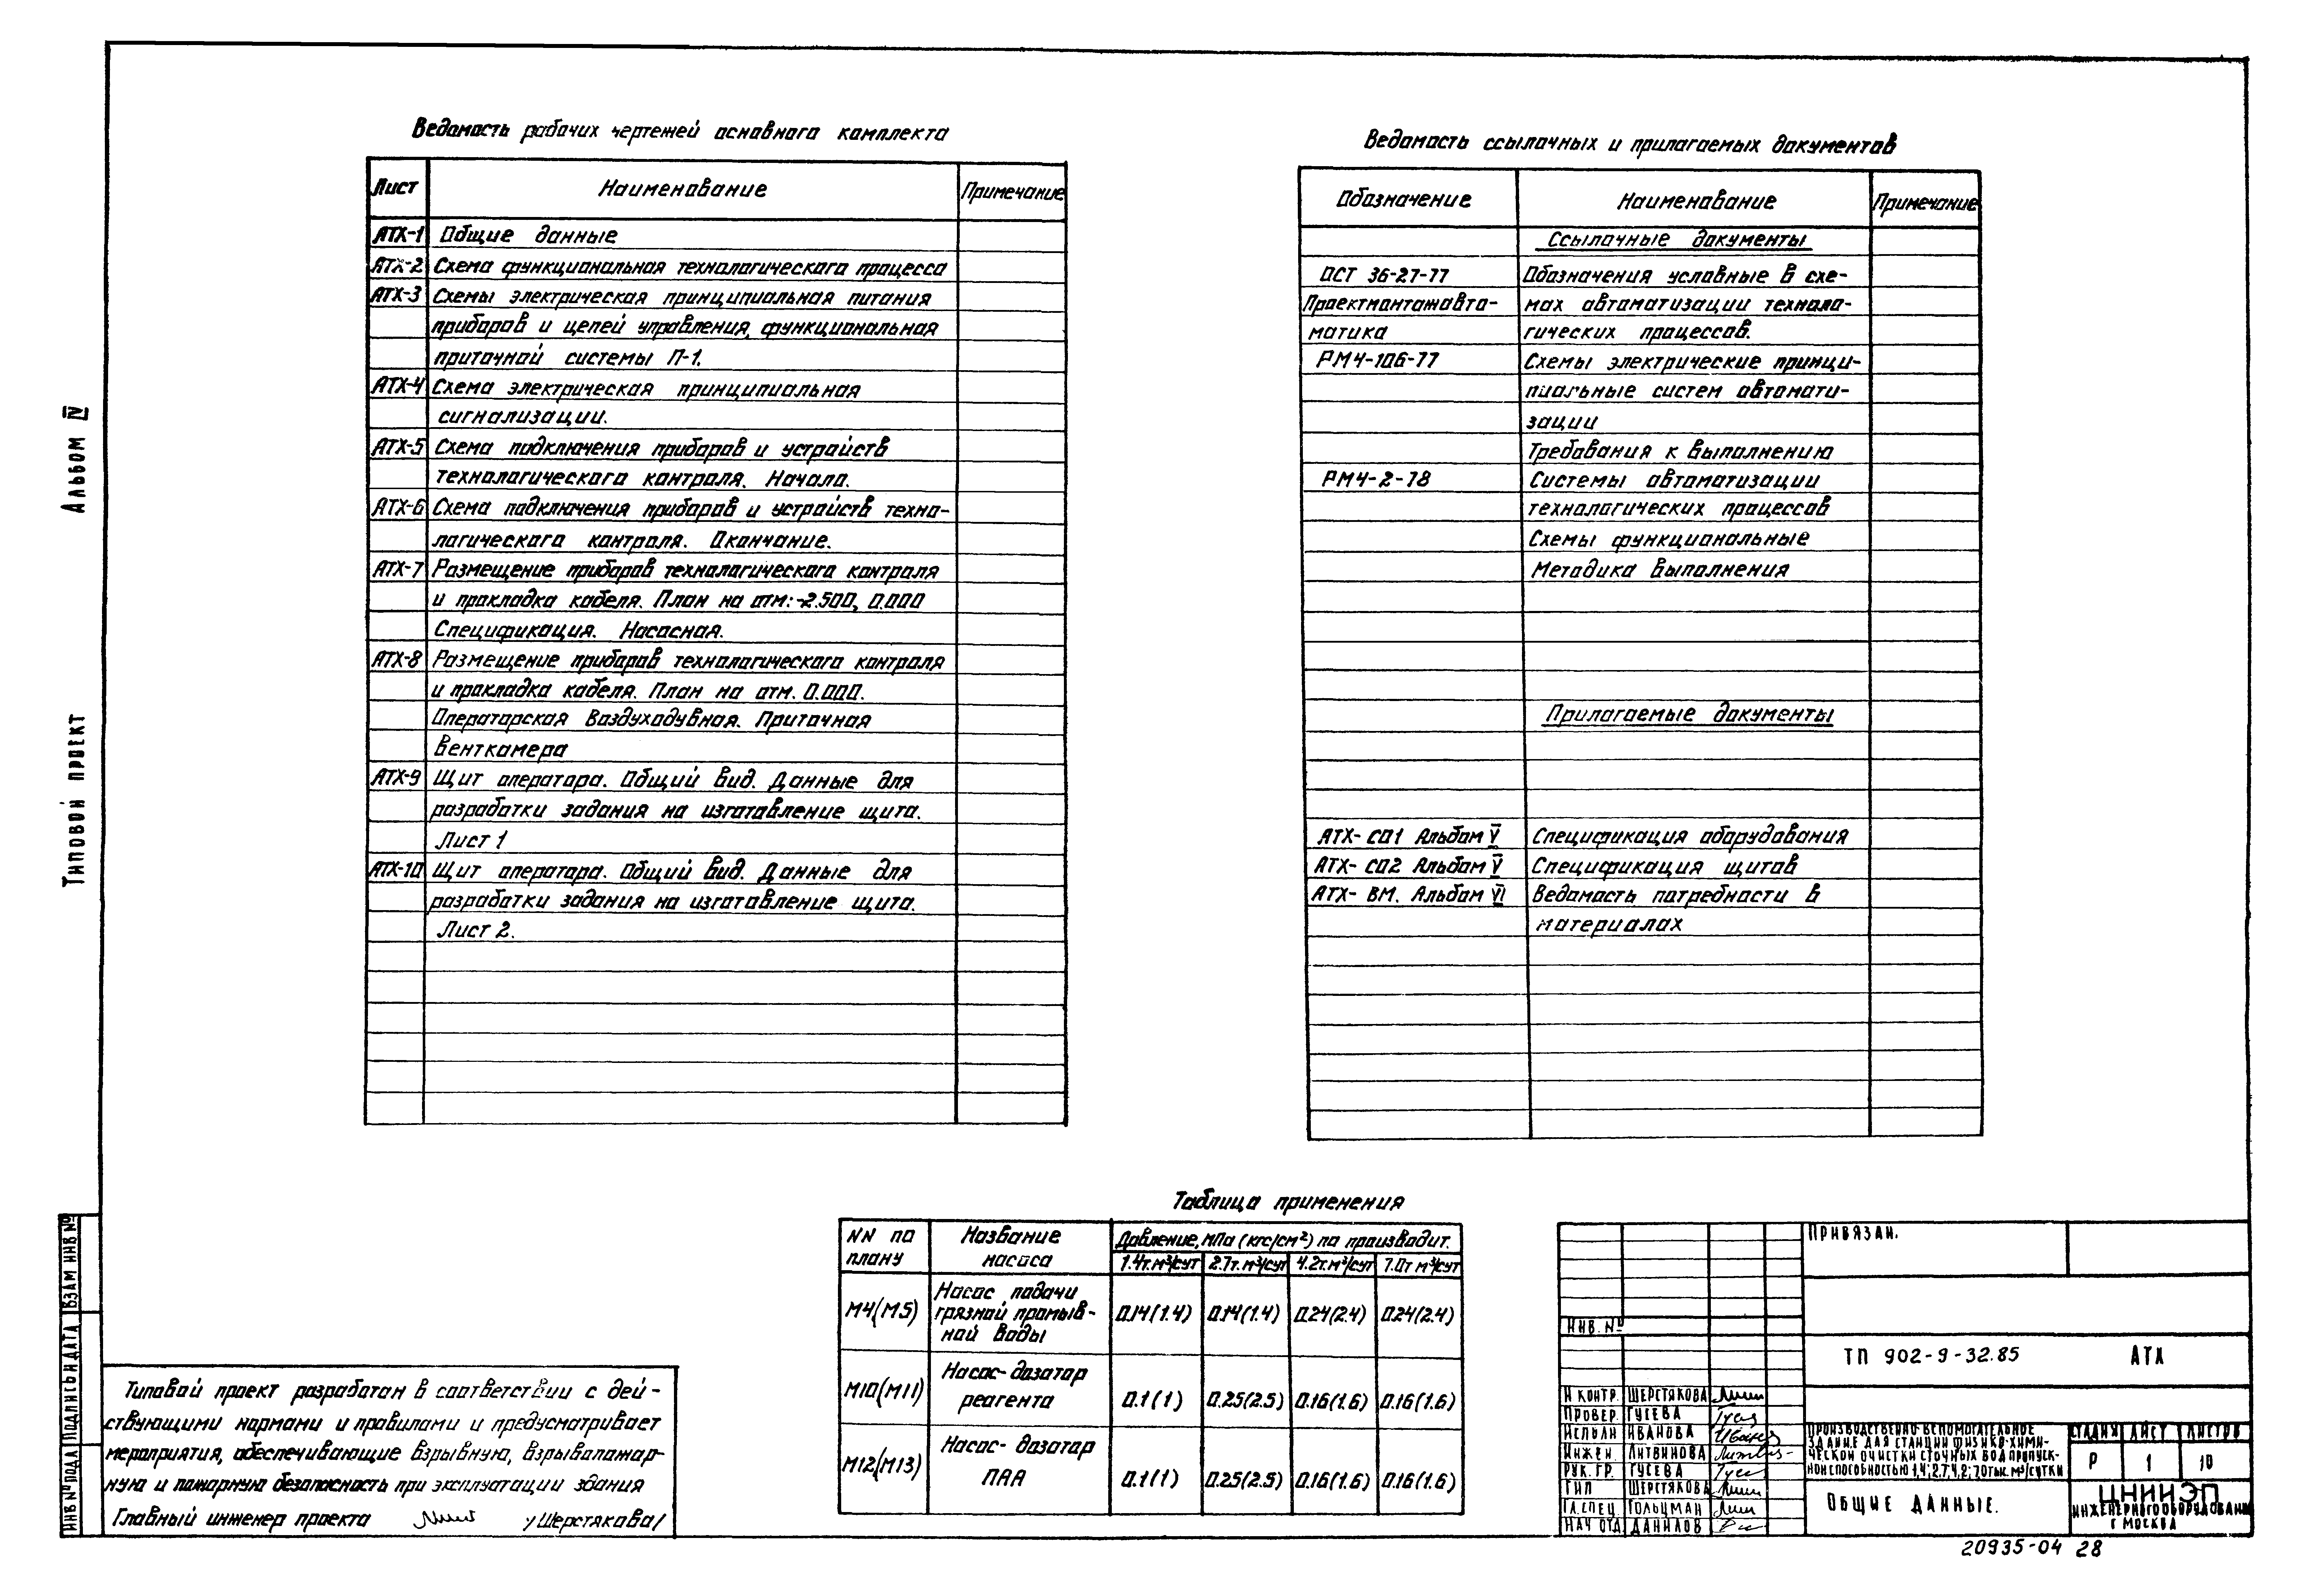 Альбом IV
Типовой проект
Ведомость рабочих чертежей основного комплекта
Лист Наименование Примечание
АТХ-1 Общие данные
АТХ-2 Схема функциональная технологического процесса
АТХ-3 Схемы электрическая принципиальная питания
приборов и цепей управления, функциональная
приточной системы П-1.
АТХ-4 Схема электрическая принципиальная
сигнализации.
АТХ-5 Схема подключения приборов и устройств
технологического контроля. Начало.
АТХ-6 Схема подключения приборов и устройств техно-
логического контроля. Окончание.
АТХ-7 Размещение приборов технологического контроля
и прокладка кабеля. План на отм:-2.500, 0.000
Спецификация. Насосная.
АТХ-8 Размещение приборов технологического контроля
и прокладка кабеля. План на отм. 0.000.
Операторская Воздуходувная. Приточная
венткамера
АТХ-9 Щит оператора. Общий вид. Данные для
разработки задания на изготовление щита.
Лист 1
АТХ-10 Щит оператора. Общий вид. Данные для
разработки задания на изготовление щита.
Лист 2.
Ведомость ссылочных и прилагаемых документов
Обозначение Наименование Примечание
Ссылочные документы
ОСТ 36-27-77 Обозначения условные в схе-
Проектмонтажавто- мах автоматизации техноло-
матика гических процессов.
РМ4-106-77 Схемы электрические принци-
пиальные систем автомати-
зации
Требования к выполнению
РМ4-2-78 Системы автоматизации
технологических процессов
Схемы функциональные
Методика выполнения
Прилагаемые документы
АТХ- СО1 Альбом V Спецификация оборудования
АТХ- СО2 Альбом V Спецификация щитов
АТХ- ВМ. Альбом VI Ведомость потребности в
материалах
Таблица применения
NN по плану Название насоса Давление, МПа (кгс/см²) по производит.
1.4т.м³/сут 2.7т.м³/сут 4.2т.м³/сут 7.0т м³/сут
М4(М5) Насос подачи грязной промыв- ной воды 0.14(1.4) 0.14(1.4) 0.24(2.4) 0.24(2.4)
М10(М11) Насос-дозатор реагента 0.1(1) 0.25(2.5) 0.16(1.6) 0.16(1.6)
М12(М13) Насос- дозатор ПАА 0.1(1) 0.25(2.5) 0.16(1.6) 0.16(1.6)
Типовой проект разработан в соответствии с дей-
ствующими нормами и правилами и предусматривает
мероприятия, обеспечивающие взрывную, взрывопожар-
ную и пожарную безопасность при эксплуатации здания
Главный инженер проекта /Шерстякова/
Инв № подл Подпись и дата Взам инв №
Привязан.
Инв. №
ТП 902-9-32.85 АТХ
Н контр. Шерстякова
Провер. Гусева
Исполн Иванова
Инжен. Литвинова
Рук. гр. Гусева
ГИП Шерстякова
Гл. спец. Гольцман
Нач отд Данилов
Производственно-вспомогательное
здание для станции физико-хими-
ческой очистки сточных вод пропуск-
ной способностью 1,4; 2,7; 4,2; 7,0 тыс. м³/сутки
Стадия Лист Листов
Р 1 10
Общие данные.
ЦНИИЭП
инженерного оборудования
г Москва
20935-04 28